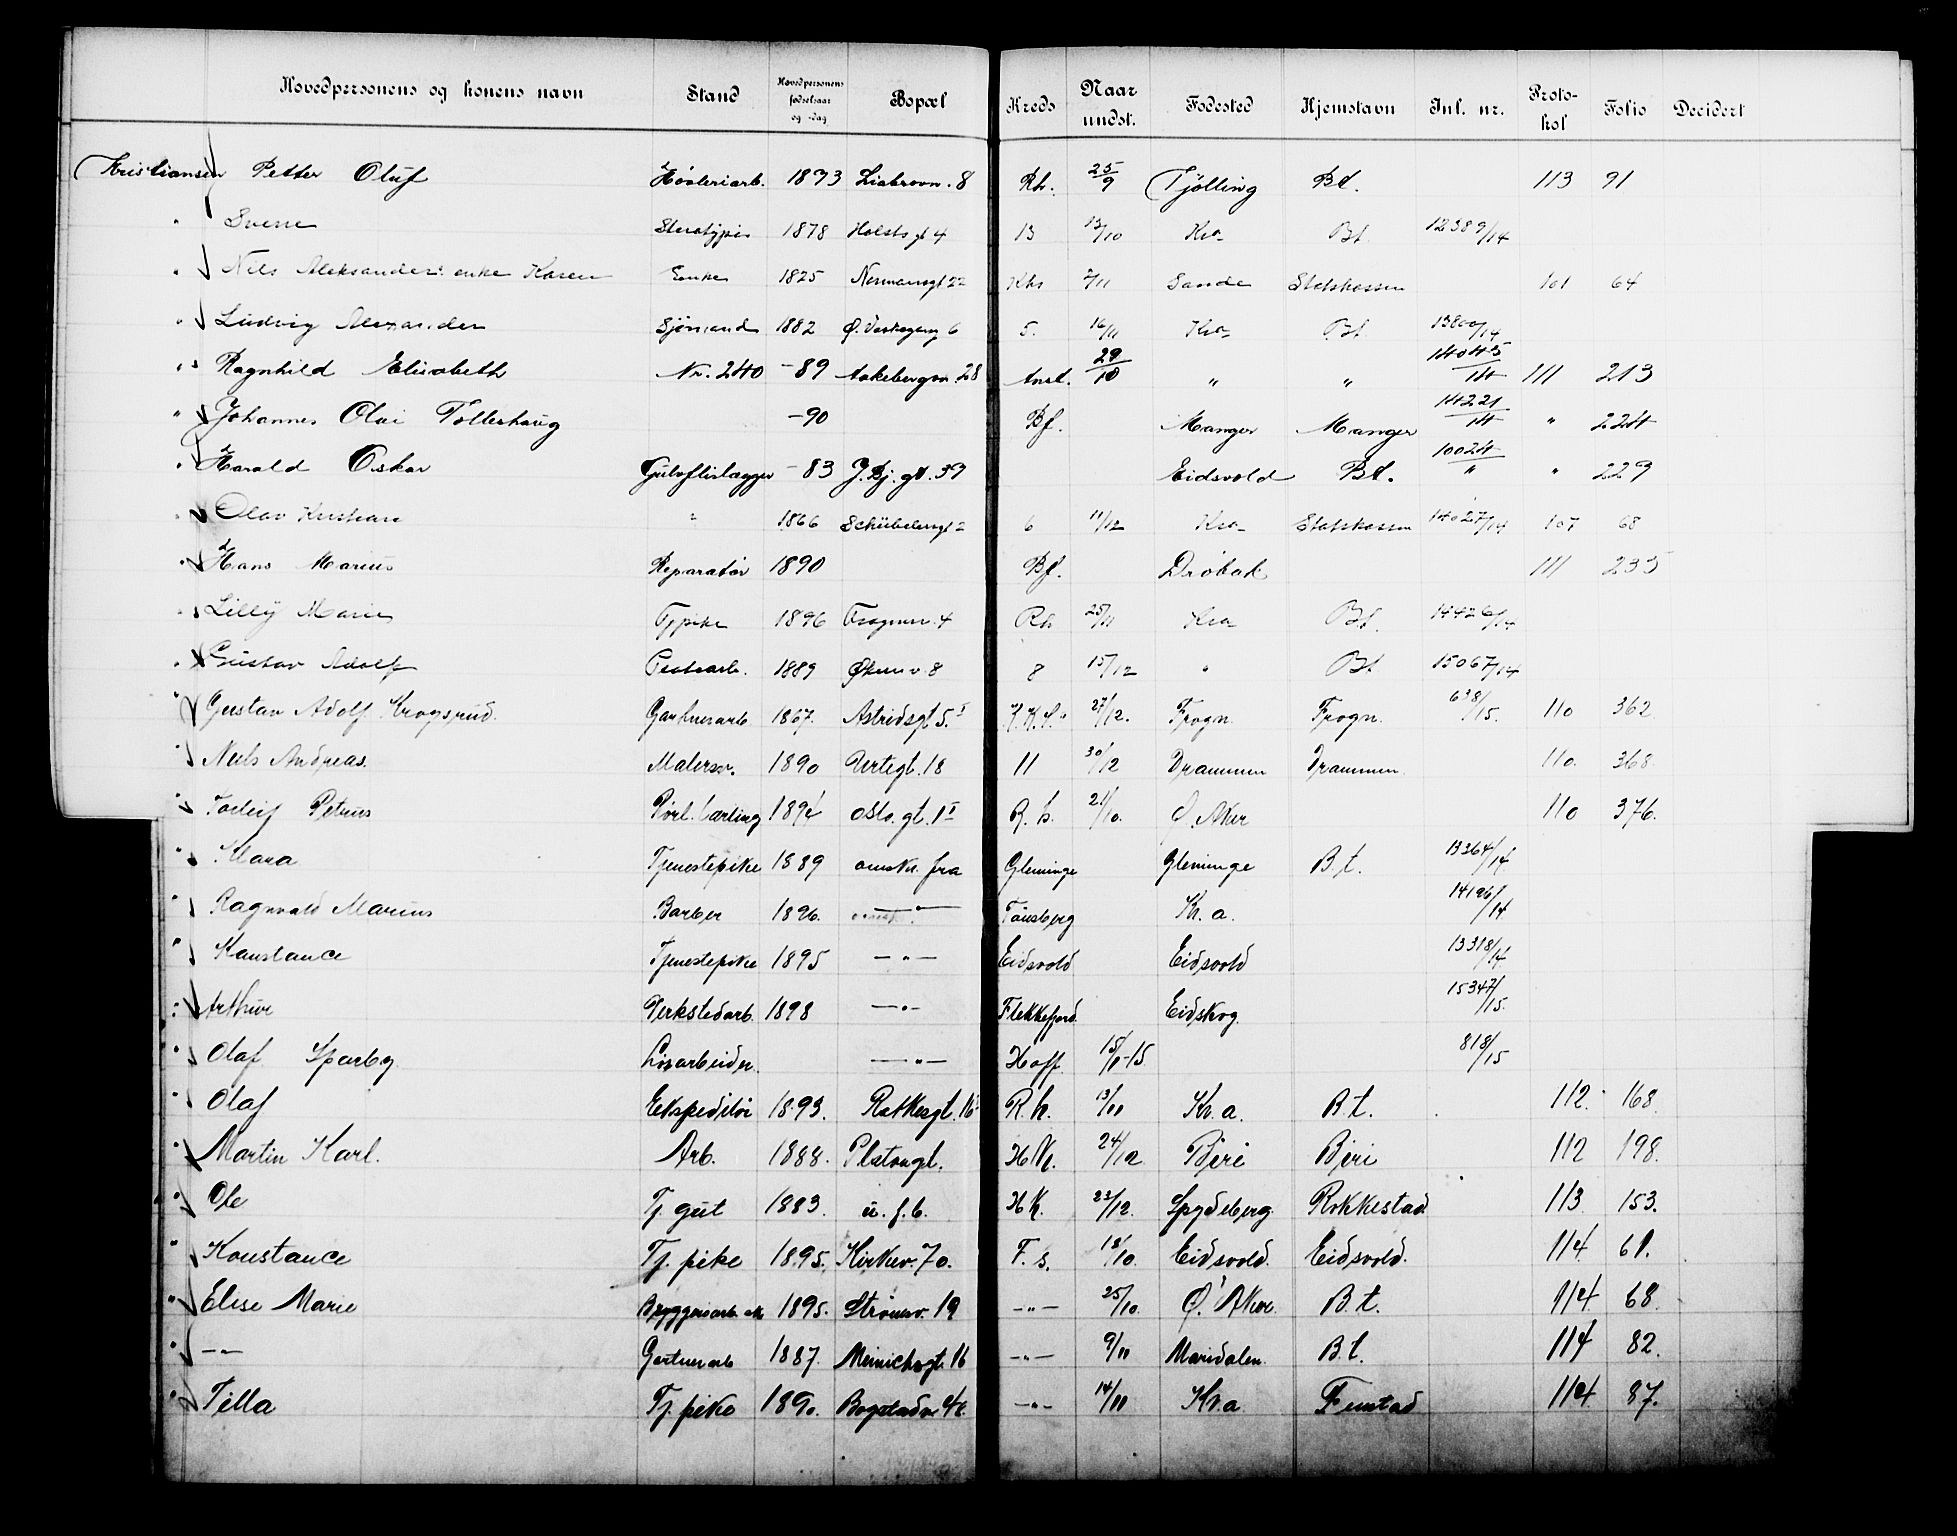 Hovedpersonens og konens navn Stand Hovedpersonens fødselsaar og -dag Bopæl Kreds Naar undst. Fødested Hjemstavn Inl. nr. Protokol Folio Decidert
Kristiansen Petter Oluf Høvleriarb. 1873 Liabrovn. 8 Rh. 25/9 Tjölling Bt. 113 91
" Sverre 1878 Holsts gt 4 13 13/10 Kra Bt 12389/14
" Nils Aleksanders enke Karen Enke 1825 Normannsgt 22 Khs 2/11 Sande Statskassen 101 64
" Ludvig Alexander Sjømand 1882 Ø. 6 5. 16/11 Kra Bt 13800/14
" Ragnhild Elisabeth Nr. 240 -89 Aakebergvn. 28 Anst. 29/10 " " 14045/14 111 213
" Johannes Olai Tolleshaug -90 Bf. Manger Manger 14221/14 " 224
" Harald Oskar Gulvflislægger -83 J. Bj. gt. 39 Eidsvold Bt. 10024/" " 229
" Olav Kristian " 1866 Schübelersgt 2 6 11/12 Kra Statskassen 14027/14 107 68
" Hans Marius Reparatør 1890 Bf. Drøbak 111 235
" Lilly Marie Tjpike 1896 Frognerv. 4 Rh 25/11 Kra Bt. 14426/14
" Gustav Adolf 1889 Økernv. 8 8 15/12 " Bt 15067/14
" Gustav Adolf Krogsrud. Gartnerarb 1867. Astridsgt. 5. I K.K.S. 27/12. Frogn. Frogn. 638/15. 110 362
" Nils Andreas. Malersv. 1890 Vertsgt. 18 11 30/12 Drammen Drammen. 110. 368.
" Torleif Petrus Rørl. lærling 1894 Oslo. gt. 1 I R. h. 21/10. Ø. Aker 110 376.
" Klara Tjenestepike 1889 anskr. fra Glemminge Glemminge B. t. 13364/14
" Ragnvald Marius Barber 1896. —"— Tønsberg Kr. a. 14196/14
" Konstance Tjenestepike 1895 —"— Eidsvold Eidsvold 13318/14
" Arthur Verkstedarb. 1898 —"— Flekkefjord. Eidskog. 15347/15.
" Olaf Sparby Løsarbeider. —"— Hoff. 15/1-15 818/15
" Olaf Ekspeditør 1893. Ratkesgt. 16 R. h. 13/11 Kr. a. B. t. 112. 168.
" Martin Karl. Arb. 1888. Platougt. H K. 24/12 Biri Biri 112 198.
" Ole Tj. gut 1883. u. f. b. H K. 23/12. Spydeberg. Rakkestad 113. 153.
" Konstance Tj. pike 1895. Kirkev. 70. F. s. 18/10. Eidsvold. Eidsvold. 114 61.
" Elise Marie Bryggeriarb. 1895. Strømsv. 19 —"— 25/10. Ø. Aker. B. t. 114. 68.
" —"— Gartnerarb 1887. Meinichsgt. 16 —"— 9/11 Maridalen. B. t. 114 82.
" Tilla Tj. pike 1890. Bogstadv. 46. —"— 14/11 Kr. a. Fenstad 114 87.